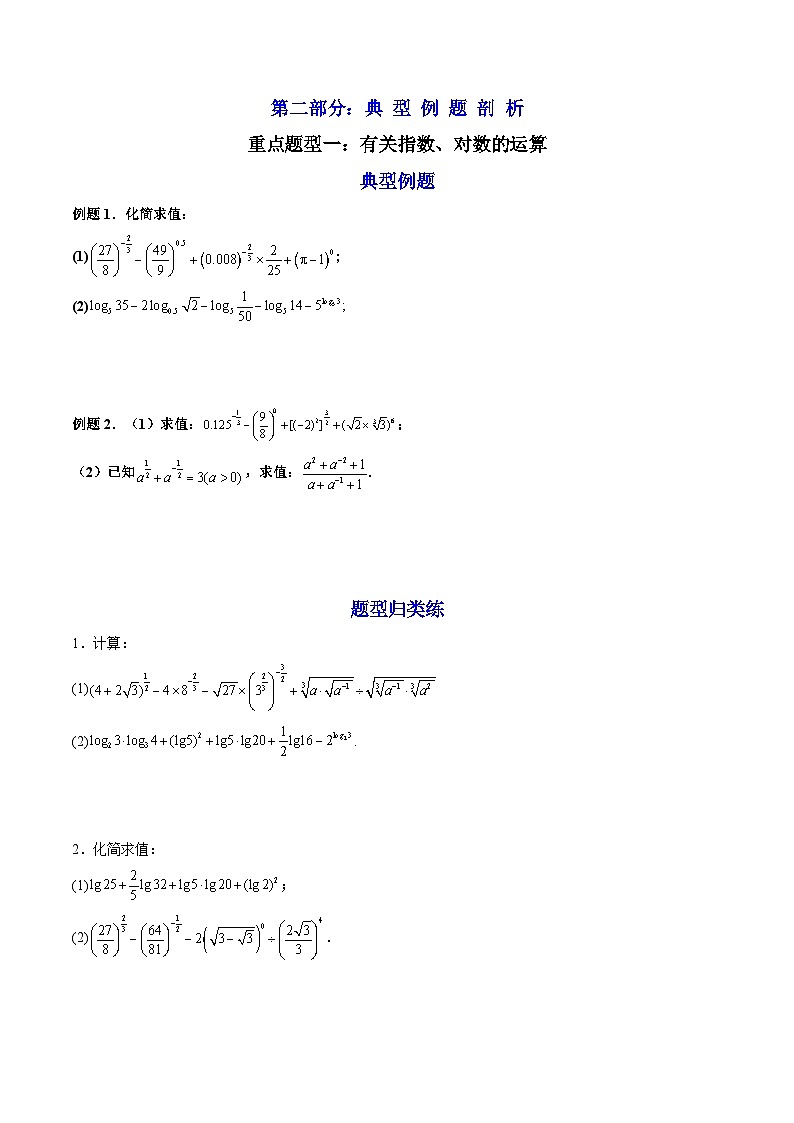 第二部分：典 型 例 题 剖 析
重点题型一：有关指数、对数的运算
典型例题
例题1．化简求值：
(1)(27/8)^{-2/3}−(49/9)^{0.5}+(0.008)^{-2/3}×2/25+(π−1)^0;
(2)log₅35−2log_{0.5}√2−log₅(1/50)−log₅14−5^{log₅3};
例题2．（1）求值：0.125^{-1/3}−(9/8)^0+[(−2)²]^{3/2}+(√2×∛3)^6；
（2）已知a^{1/2}+a^{-1/2}=3(a>0)，求值：(a²+a^{-2}+1)/(a+a^{-1}+1).
题型归类练
1．计算：
(1)(4+2√3)^{1/2}−4×8^{-2/3}−√27×(3^{2/3})^{-3/2}+∛(a·√(a^{-1}))÷∛(a^{-1}·∛(a²))
(2)log₂3·log₃4+(lg5)²+lg5·lg20+(1/2)lg16−2^{log₂3}.
2．化简求值：
(1)lg25+(2/5)lg32+lg5·lg20+(lg2)²；
(2)(27/8)^{2/3}−(64/81)^{-1/2}−2(√(3−√3))^0÷(2√3/3)^4．